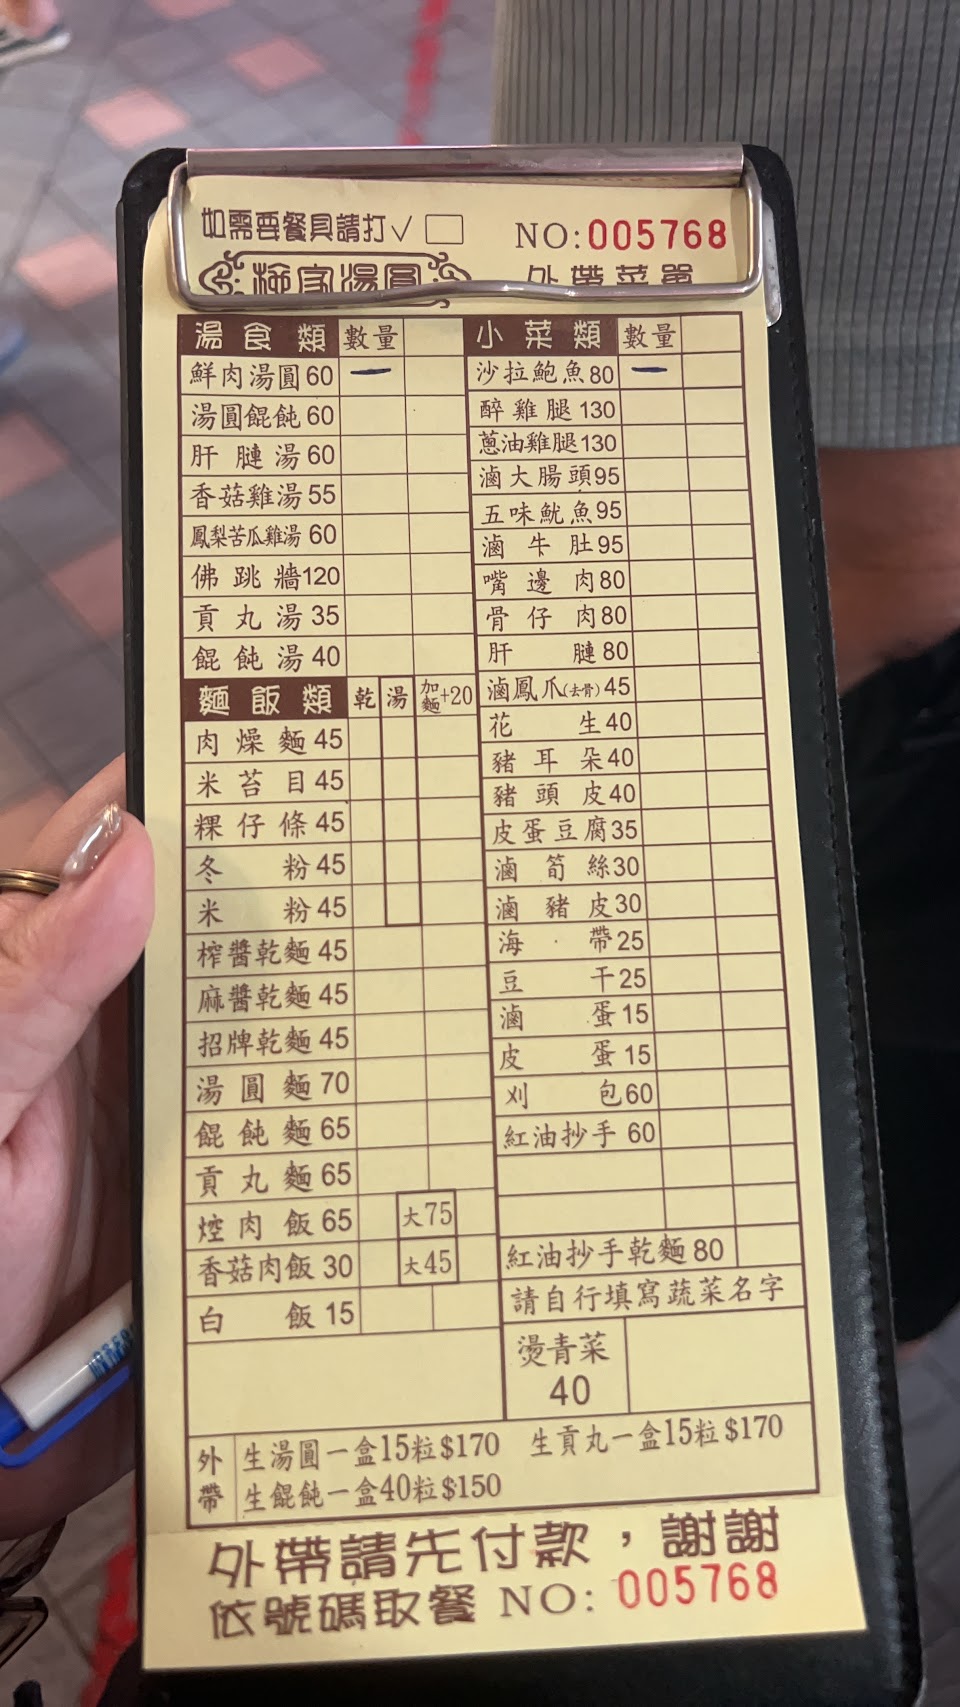 如需要餐具請打✓ □ NO:005768
施家湯圓 外帶菜單
湯食類 數量
鮮肉湯圓 60 一
湯圓餛飩 60
肝膁湯 60
香菇雞湯 55
鳳梨苦瓜雞湯 60
佛跳牆 120
貢丸湯 35
餛飩湯 40
麵飯類 乾 湯 加麵+20
肉燥麵 45
米苔目 45
粿仔條 45
冬粉 45
米粉 45
榨醬乾麵 45
麻醬乾麵 45
招牌乾麵 45
湯圓麵 70
餛飩麵 65
貢丸麵 65
焢肉飯 65 大75
香菇肉飯 30 大45
白飯 15
小菜類 數量
沙拉鮑魚 80 一
醉雞腿 130
蔥油雞腿 130
滷大腸頭 95
五味魷魚 95
滷牛肚 95
嘴邊肉 80
骨仔肉 80
肝膁 80
滷鳳爪(去骨) 45
花生 40
豬耳朵 40
豬頭皮 40
皮蛋豆腐 35
滷筍絲 30
滷豬皮 30
海帶 25
豆干 25
滷蛋 15
皮蛋 15
刈包 60
紅油抄手 60
紅油抄手乾麵 80
請自行填寫蔬菜名字
燙青菜
40
外帶
生湯圓一盒15粒$170 生貢丸一盒15粒$170
生餛飩一盒40粒$150
外帶請先付款，謝謝
依號碼取餐 NO: 005768